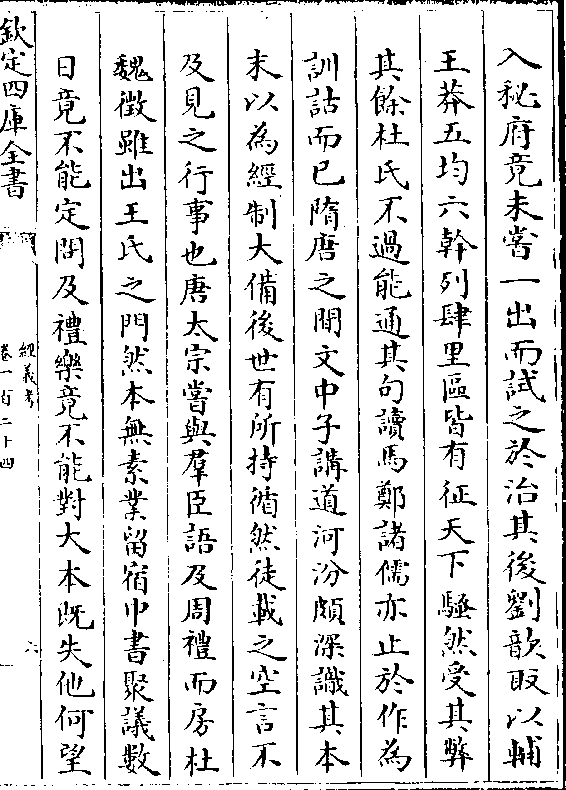 入秘府竟未嘗一出而試之於治其後劉歆取以輔
王莽五均六幹列肆里區皆有征天下騷然受其弊
其餘杜氏不過能通其句讀馬鄭諸儒亦止於作為
訓詁而已隋唐之間文中子講道河汾頗深識其本
末以為經制大備後世有所持循然徒載之空言不
及見之行事也唐太宗嘗與羣臣語及周禮而房杜
魏徵雖出王氏之門然本無素業留宿中書聚議數
日竟不能定問及禮樂竟不能對大本既失他何望
欽定四庫全書
經義考
卷一百二十四
六